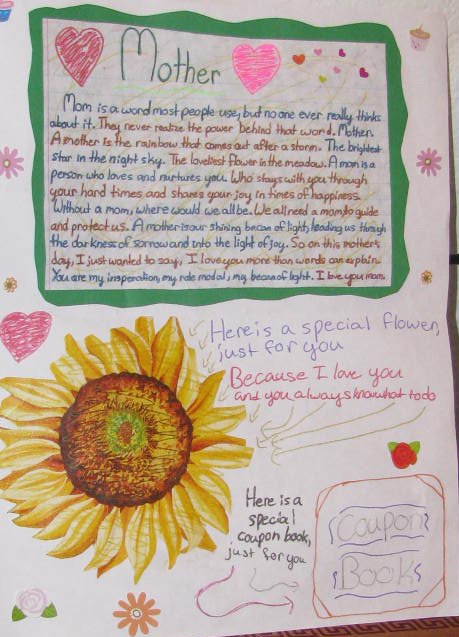 Mother
Mom is a word most people use, but no one ever really thinks
about it. They never realize the power behind that word. Mother.
A mother is the rainbow that comes out after a storm. The brightest
star in the night sky. The loveliest flower in the meadow. A mom is a
person who loves and nurtures you. Who stays with you through
your hard times and shares your joy in times of happiness.
Without a mom, where would we all be. We all need a mom, to guide
and protect us. A mother is our shining becon of light, leading us through
the darkness of sorrow and into the light of joy. So on this mother's
day, I just wanted to say, I love you more than words can explain.
You are my insperation, my role modal, my becan of light. I love you mom.
Here is a special flower,
just for you
Because I love you
and you always know what to do
Here is a
special
coupon book,
just for you
Coupon
Book